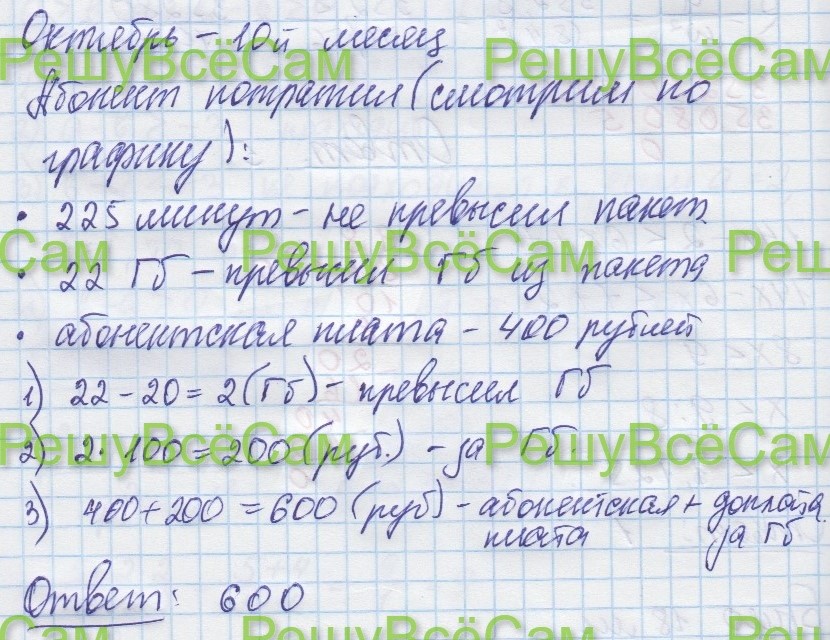 Октябрь – 10й месяц
РешуВсёСам РешуВсёСам
Абонент потратил (смотрим по
графику):
• 225 минут – не превысил пакет
Сам РешуВсёСам Решу
• 22 Гб – превысил Гб из пакета
• абонентская плата – 400 рублей
1) 22 – 20 = 2 (Гб) – превысил Гб
РешуВсёСам РешуВсёСам
2) 2 · 100 = 200 (руб.) – за Гб.
3) 400 + 200 = 600 (руб) – абонентская + доплата
плата за Гб
Ответ: 600
Сам РешуВсёСам Решу